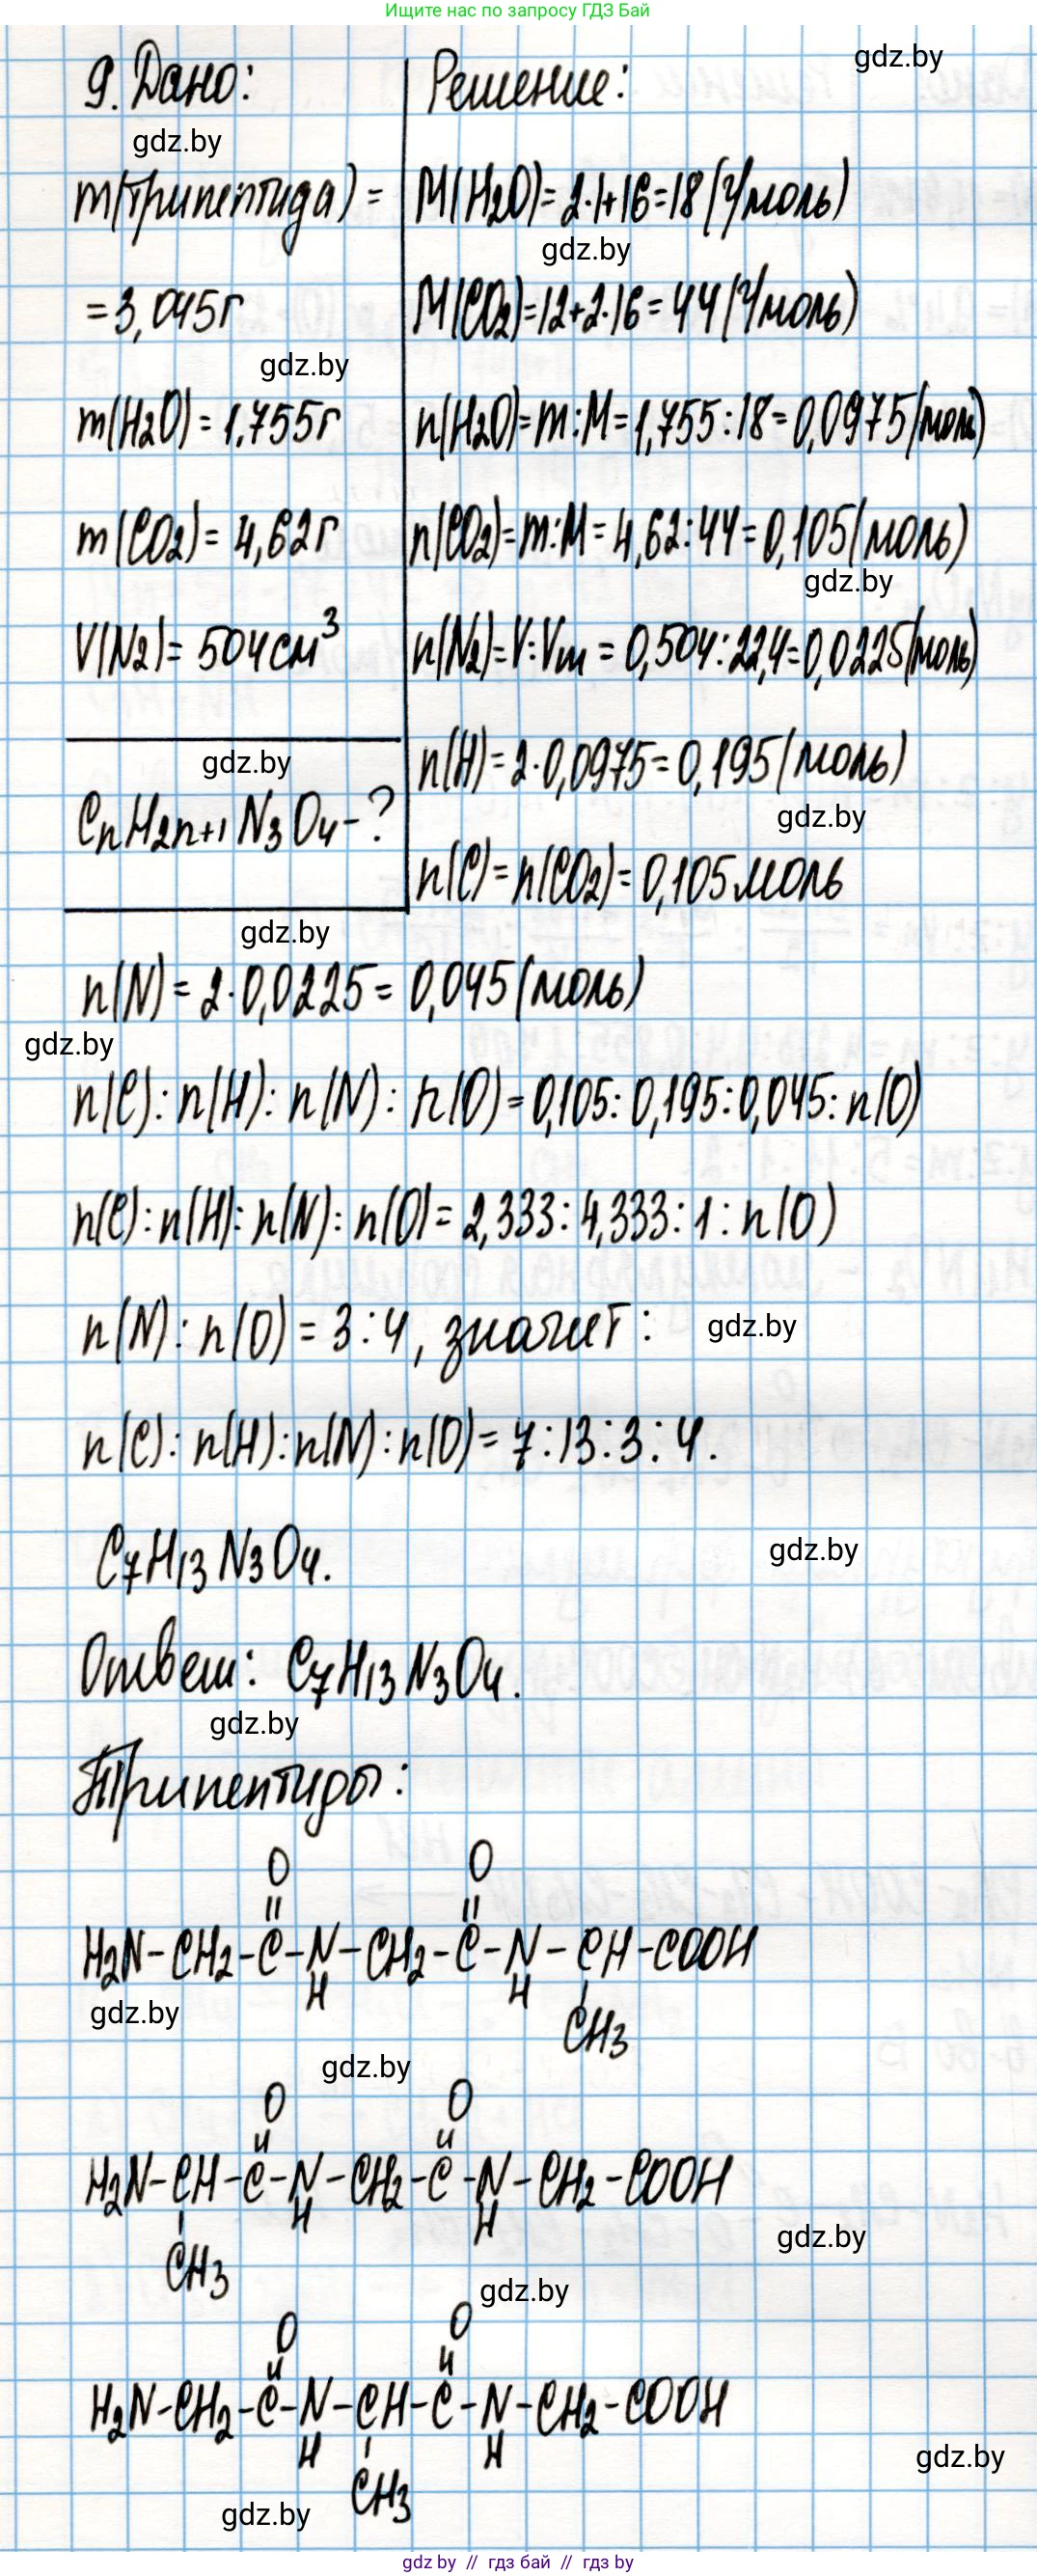 Ищите нас по запросу ГДЗ Бай
9. Дано:
Решение:
gdz.by
gdz.by
m(трипептида) =
M(H₂O)=2·1+16=18(г/моль)
gdz.by
=3,045г
M(CO₂)=12+2·16=44(г/моль)
gdz.by
m(H₂O)=1,755г
n(H₂O)=m:M=1,755:18=0,0975(моль)
m(CO₂)=4,62г
n(CO₂)=m:M=4,62:44=0,105(моль)
gdz.by
V(N₂)=504см³
n(N₂)=V:Vm=0,504:22,4=0,0225(моль)
gdz.by
n(H)=2·0,0975=0,195(моль)
CnH2n+1N₃O₄-?
gdz.by
n(C)=n(CO₂)=0,105моль
gdz.by
n(N)=2·0,0225=0,045(моль)
gdz.by
n(C):n(H):n(N):n(O)=0,105:0,195:0,045:n(O)
n(C):n(H):n(N):n(O)=2,333:4,333:1:n(O)
n(N):n(O)=3:4, значит:
gdz.by
n(C):n(H):n(N):n(O)=7:13:3:4.
C₇H₁₃N₃O₄.
gdz.by
Ответ: C₇H₁₃N₃O₄.
gdz.by
Трипептиды:
O O
H₂N-CH₂-C-N-CH₂-C-N-CH-COOH
H H
CH₃
gdz.by
gdz.by
O O
H₂N-CH-C-N-CH₂-C-N-CH₂-COOH
H H
CH₃
gdz.by
gdz.by
O O
H₂N-CH₂-C-N-CH-C-N-CH₂-COOH
H H
CH₃
gdz.by
gdz.by
gdz by // гдз бай // гдз by